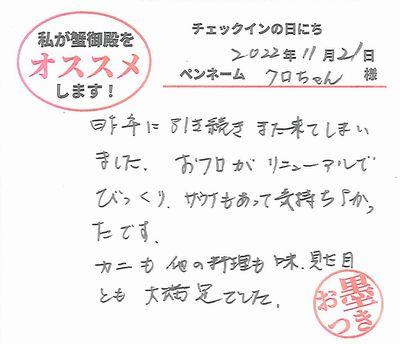 私が蟹御殿を
オススメ
します！
チェックインの日にち
2022年11月21日
ペンネーム クロちゃん 様
昨年に引き続きまた来てしまい
ました。おフロがリニューアルで
びっくり、サウナもあって気持ちよかっ
たです。
カニも他の料理も味、見た目
とも大満足でした。
墨
おつき